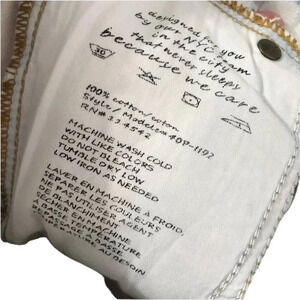 designed for you
by our NYC team
in the city
that never sleeps
because we care
30
100% cotton/coton
MACHINE WASH COLD
WITH LIKE COLORS
DO NOT BLEACH
TUMBLE DRY LOW
LOW IRON AS NEEDED
LAVER EN MACHINE A FROID
SÉPARER LES COULEURS
NE PAS UTILISER AGENT
DE BLANCHIMENT
SÉCHER EN MACHINE
A BASSE TEMPÉRATURE
REPASSAGE AU BESOIN